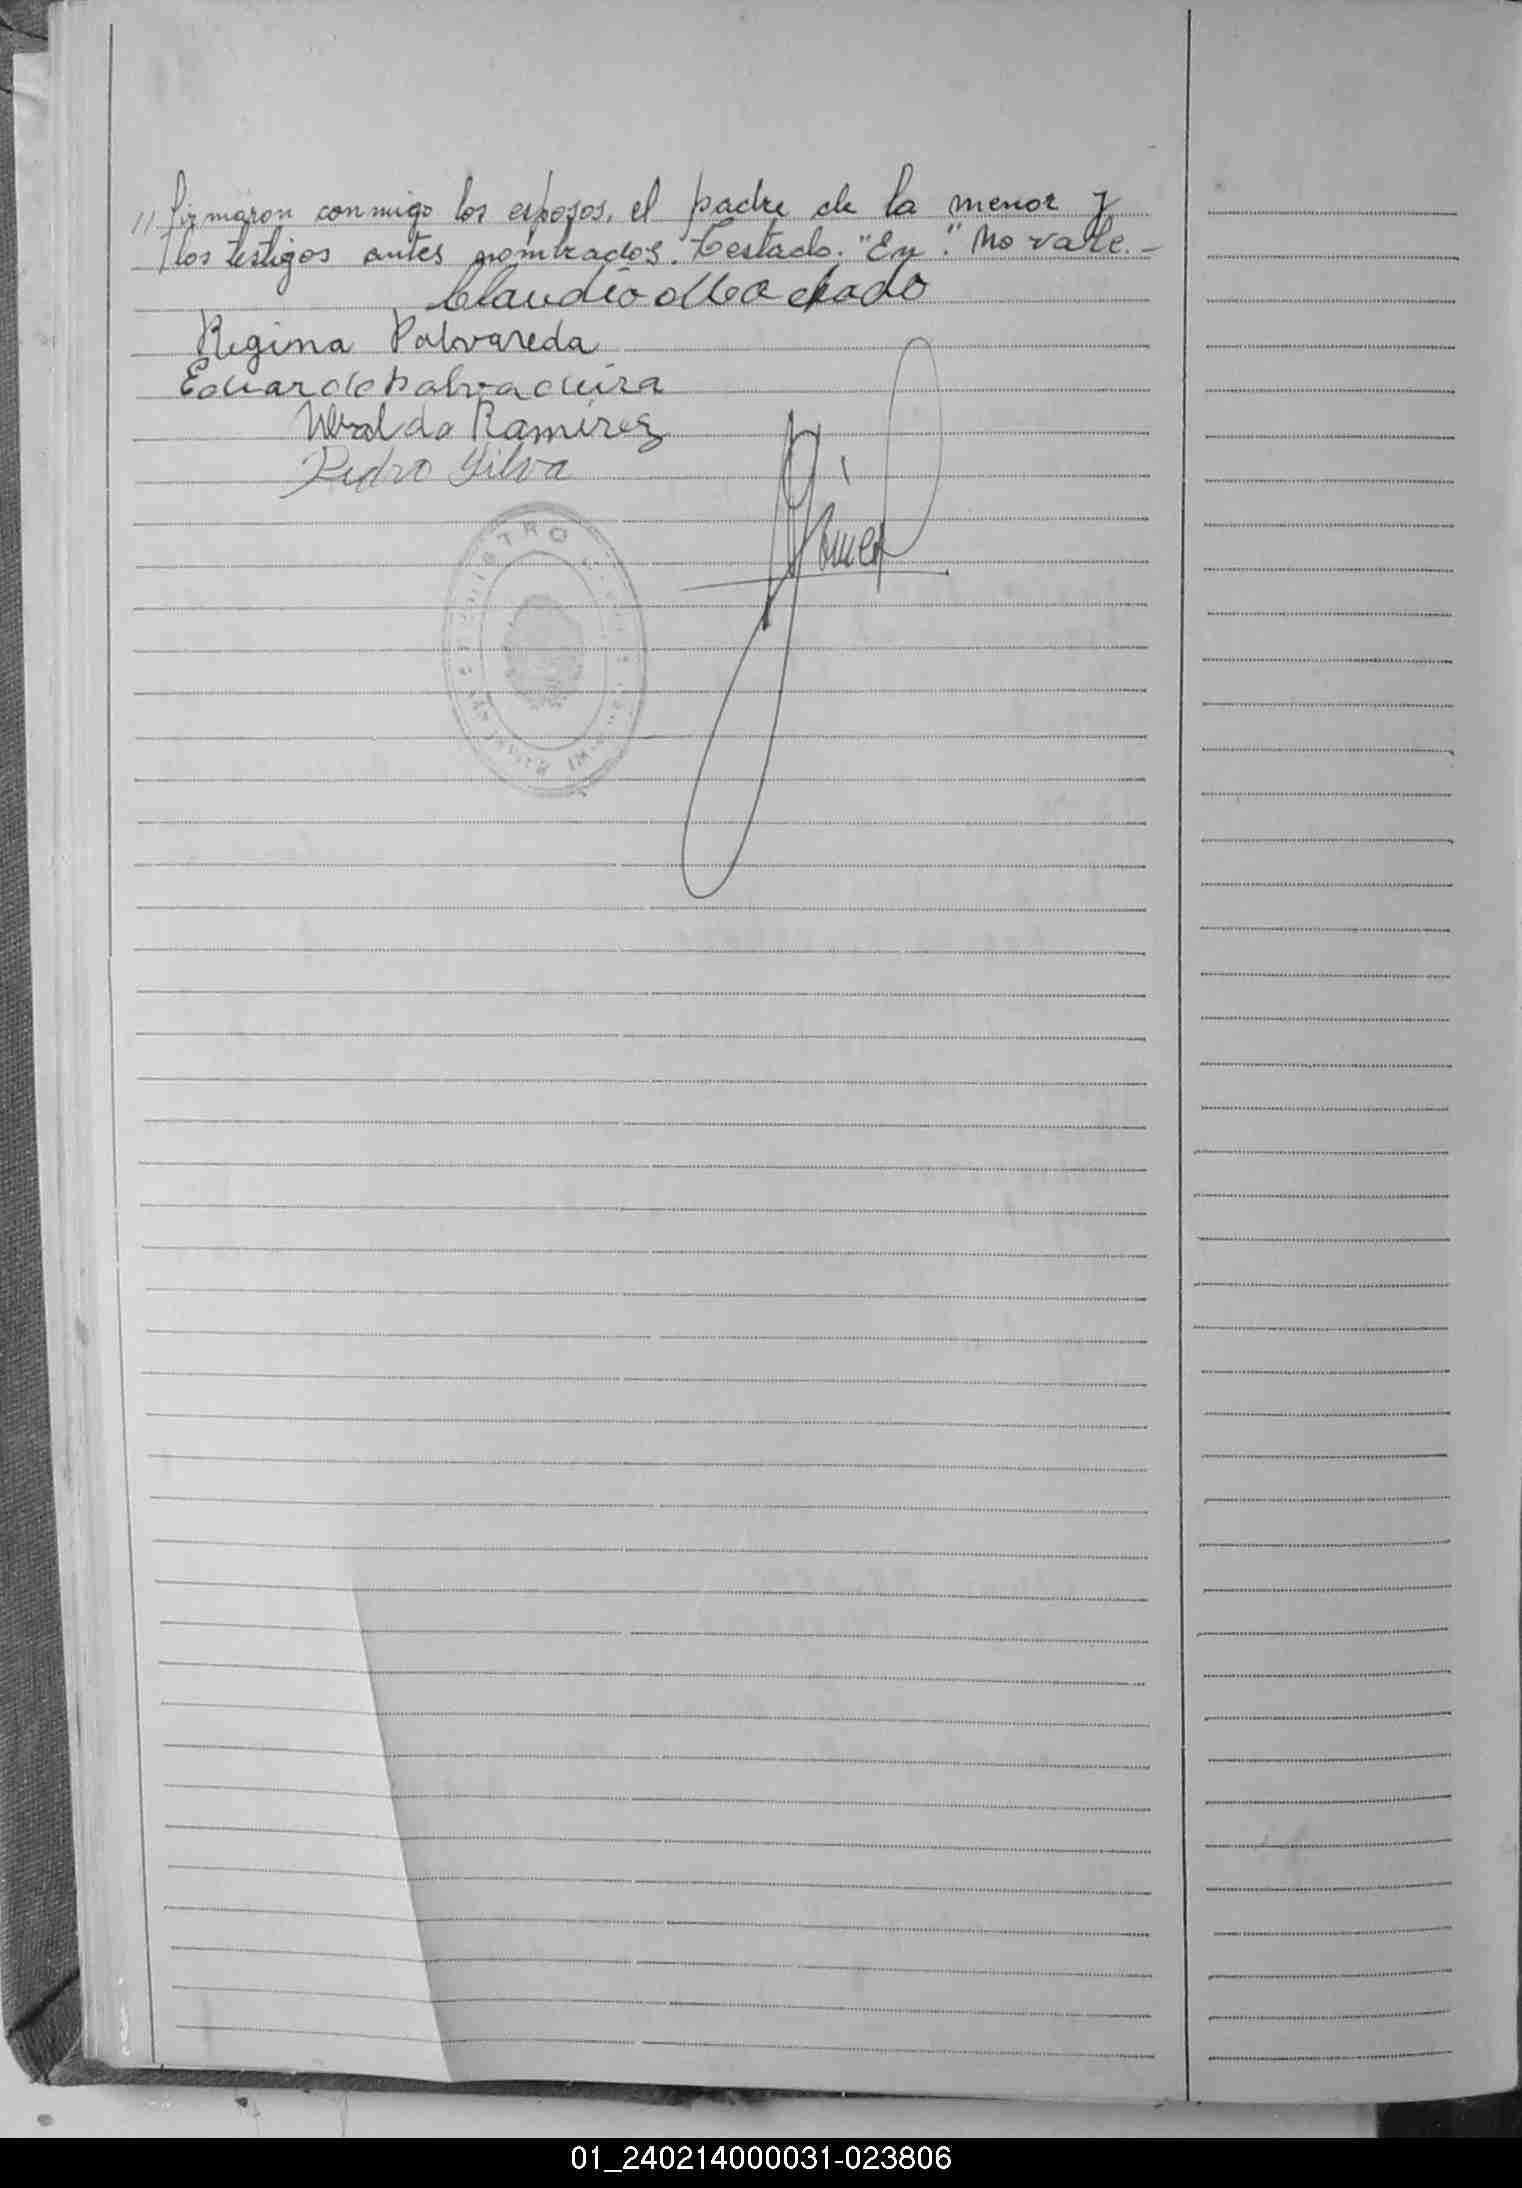 // firmaron conmigo los esposos, el padre de la menor y
los testigos antes nombrados. Testado: "En". No vale.-
Claudio Machado
Regina Palvareda
Eduardo
Ramirez
Pedro Silva
REGISTRO
01_240214000031-023806